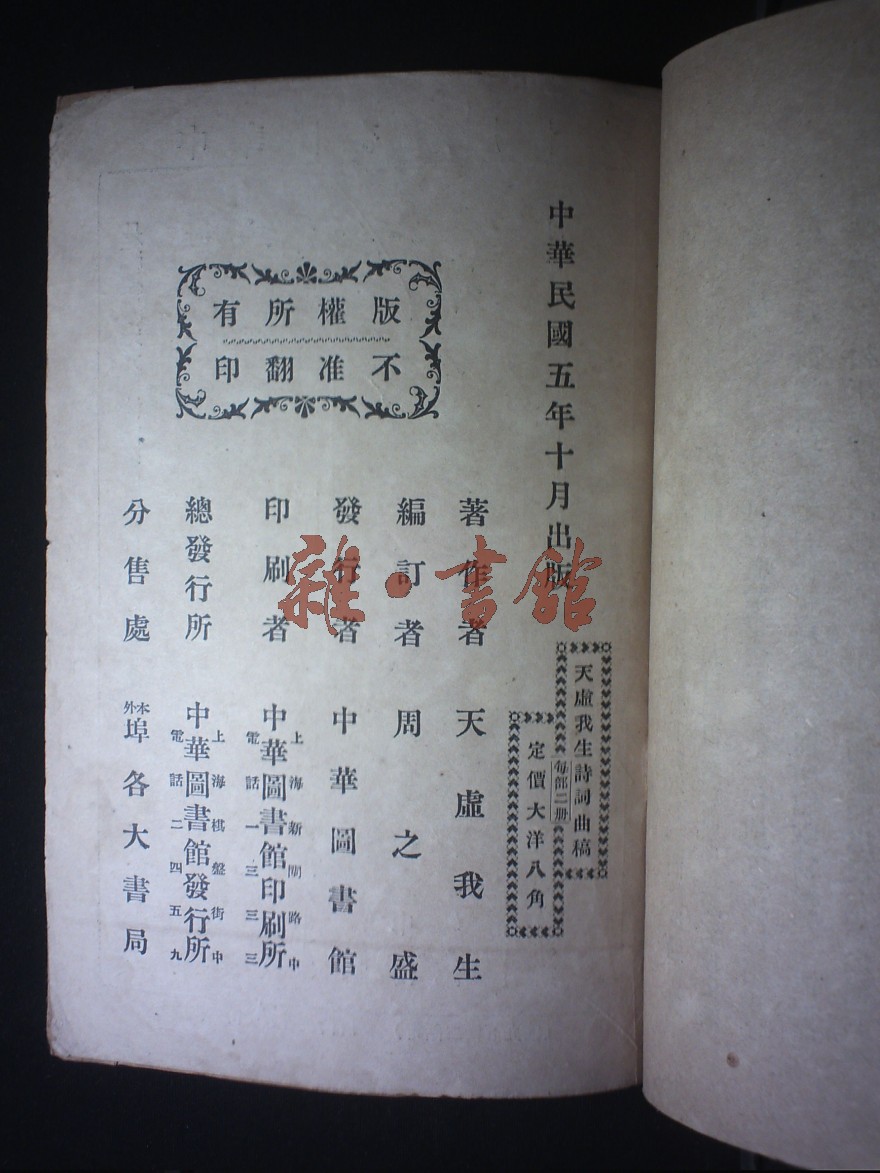 中華民國五年十月出版
天虛我生詩詞曲稿
每部二册
定價大洋八角
版權所有
不准翻印
著作者 天虛我生
編訂者 周之盛
發行者 中華圖書館
印刷者 上海新閘路中 中華圖書館印刷所 電話一三三三
總發行所 上海棋盤街中 中華圖書館發行所 電話二四五九
分售處 本外埠各大書局
雜·書館